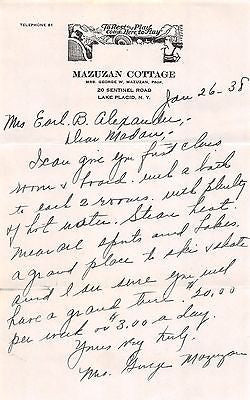 TELEPHONE 81
To Rest or Play
Come Here to Stay
MAZUZAN COTTAGE
MRS. GEORGE W. MAZUZAN, PROP.
20 SENTINEL ROAD
LAKE PLACID, N. Y.
Jan 26-38
Mrs Earl. B. Alexander,-
Dear Madam,-
I can give you first class
room & board. with a bath
to each 2 rooms. with plenty
of hot water. Steam heat.
Near all sports and lakes.
a grand place to ski & skate
and I am sure you will
have a grand time. $20.00
per week or $3.00 a day.
Yours very truly.
Mrs. George Mazuzan